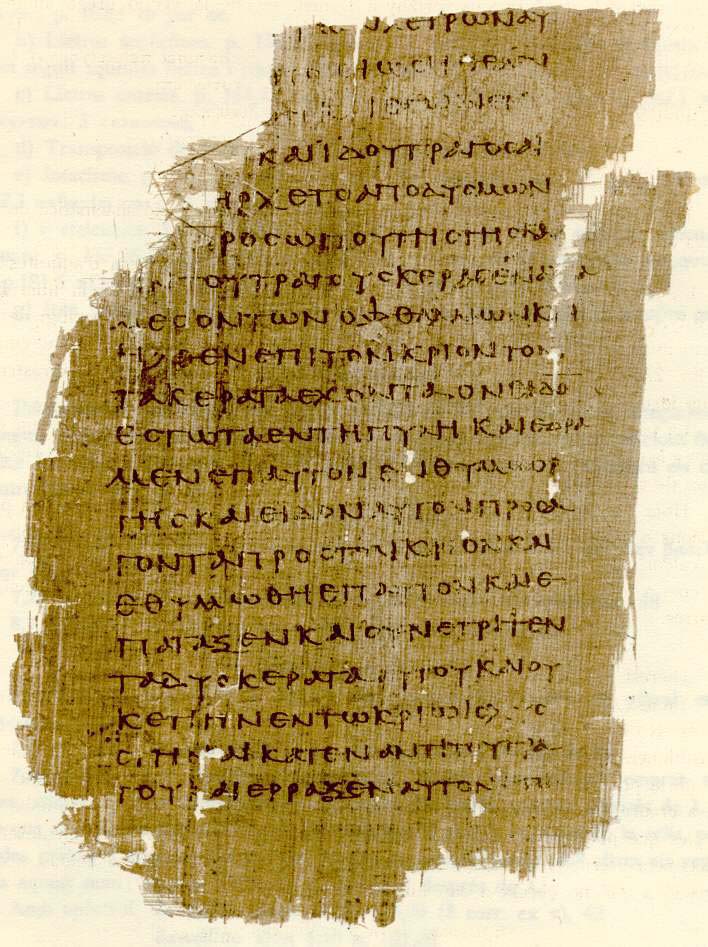 ΧΕΙΡΩΝΑΥ
ΚΑΙΙΔΟΥΤΡΑΓΟϹΑΙ
ΗΡΧΕΤΟΑΠΟΔΥϹΜΩΝ
ΡΟϹΩΠΟΥΤΗϹΓΗϹΚΑ
ΤΟΥΤΡΑΓΟΥϹΚΕΡΑϹΕΝΑΝΑ
ΜΕϹΟΝΤΩΝΟΦΘΑΛΜΩΝΚΑΙ
ΗΛΘΕΝΕΠΙΤΟΝΚΡΙΟΝΤΟΝ
ΤΑΚΕΡΑΤΑΕΧΟΝΤΑΟΝΕΙΔΟ̅
ΕϹΤΩΤΑΕΝΤΗΠΥΛΗ ΚΑΙΕΔΡΑ
ΜΕΝΕΠΑΥΤΟΝΕΝΘΥΜΩΟΡ
ΓΗϹΚΑΙΕΙΔΟΝΑΥΤΟΝΠΡΟϹΑ
ΓΟΝΤΑΠΡΟϹΤΟΝΚΡΙΟΝΚΑΙ
ΕΘΥΜΩΘΗΕΠΑΥΤΟΝΚΑΙΕ
ΠΑΤΑΞΕΝΚΑΙϹΥΝΕΤΡΙΨΕΝ
ΤΑΔΥΟΚΕΡΑΤΑΑΥΤΟΥΚΑΙΟΥ
ΚΕΤΙΗΝΕΝΤΩΚΡΙΩΙϹΧΥϹ
ϹΤΗΝΑΙΚΑΤΕΝΑΝΤΙΤΟΥΤΡΑ
ΓΟΥΚΑΙΕΡΡΑΞΕΝΑΥΤΟΝΕΠΙ